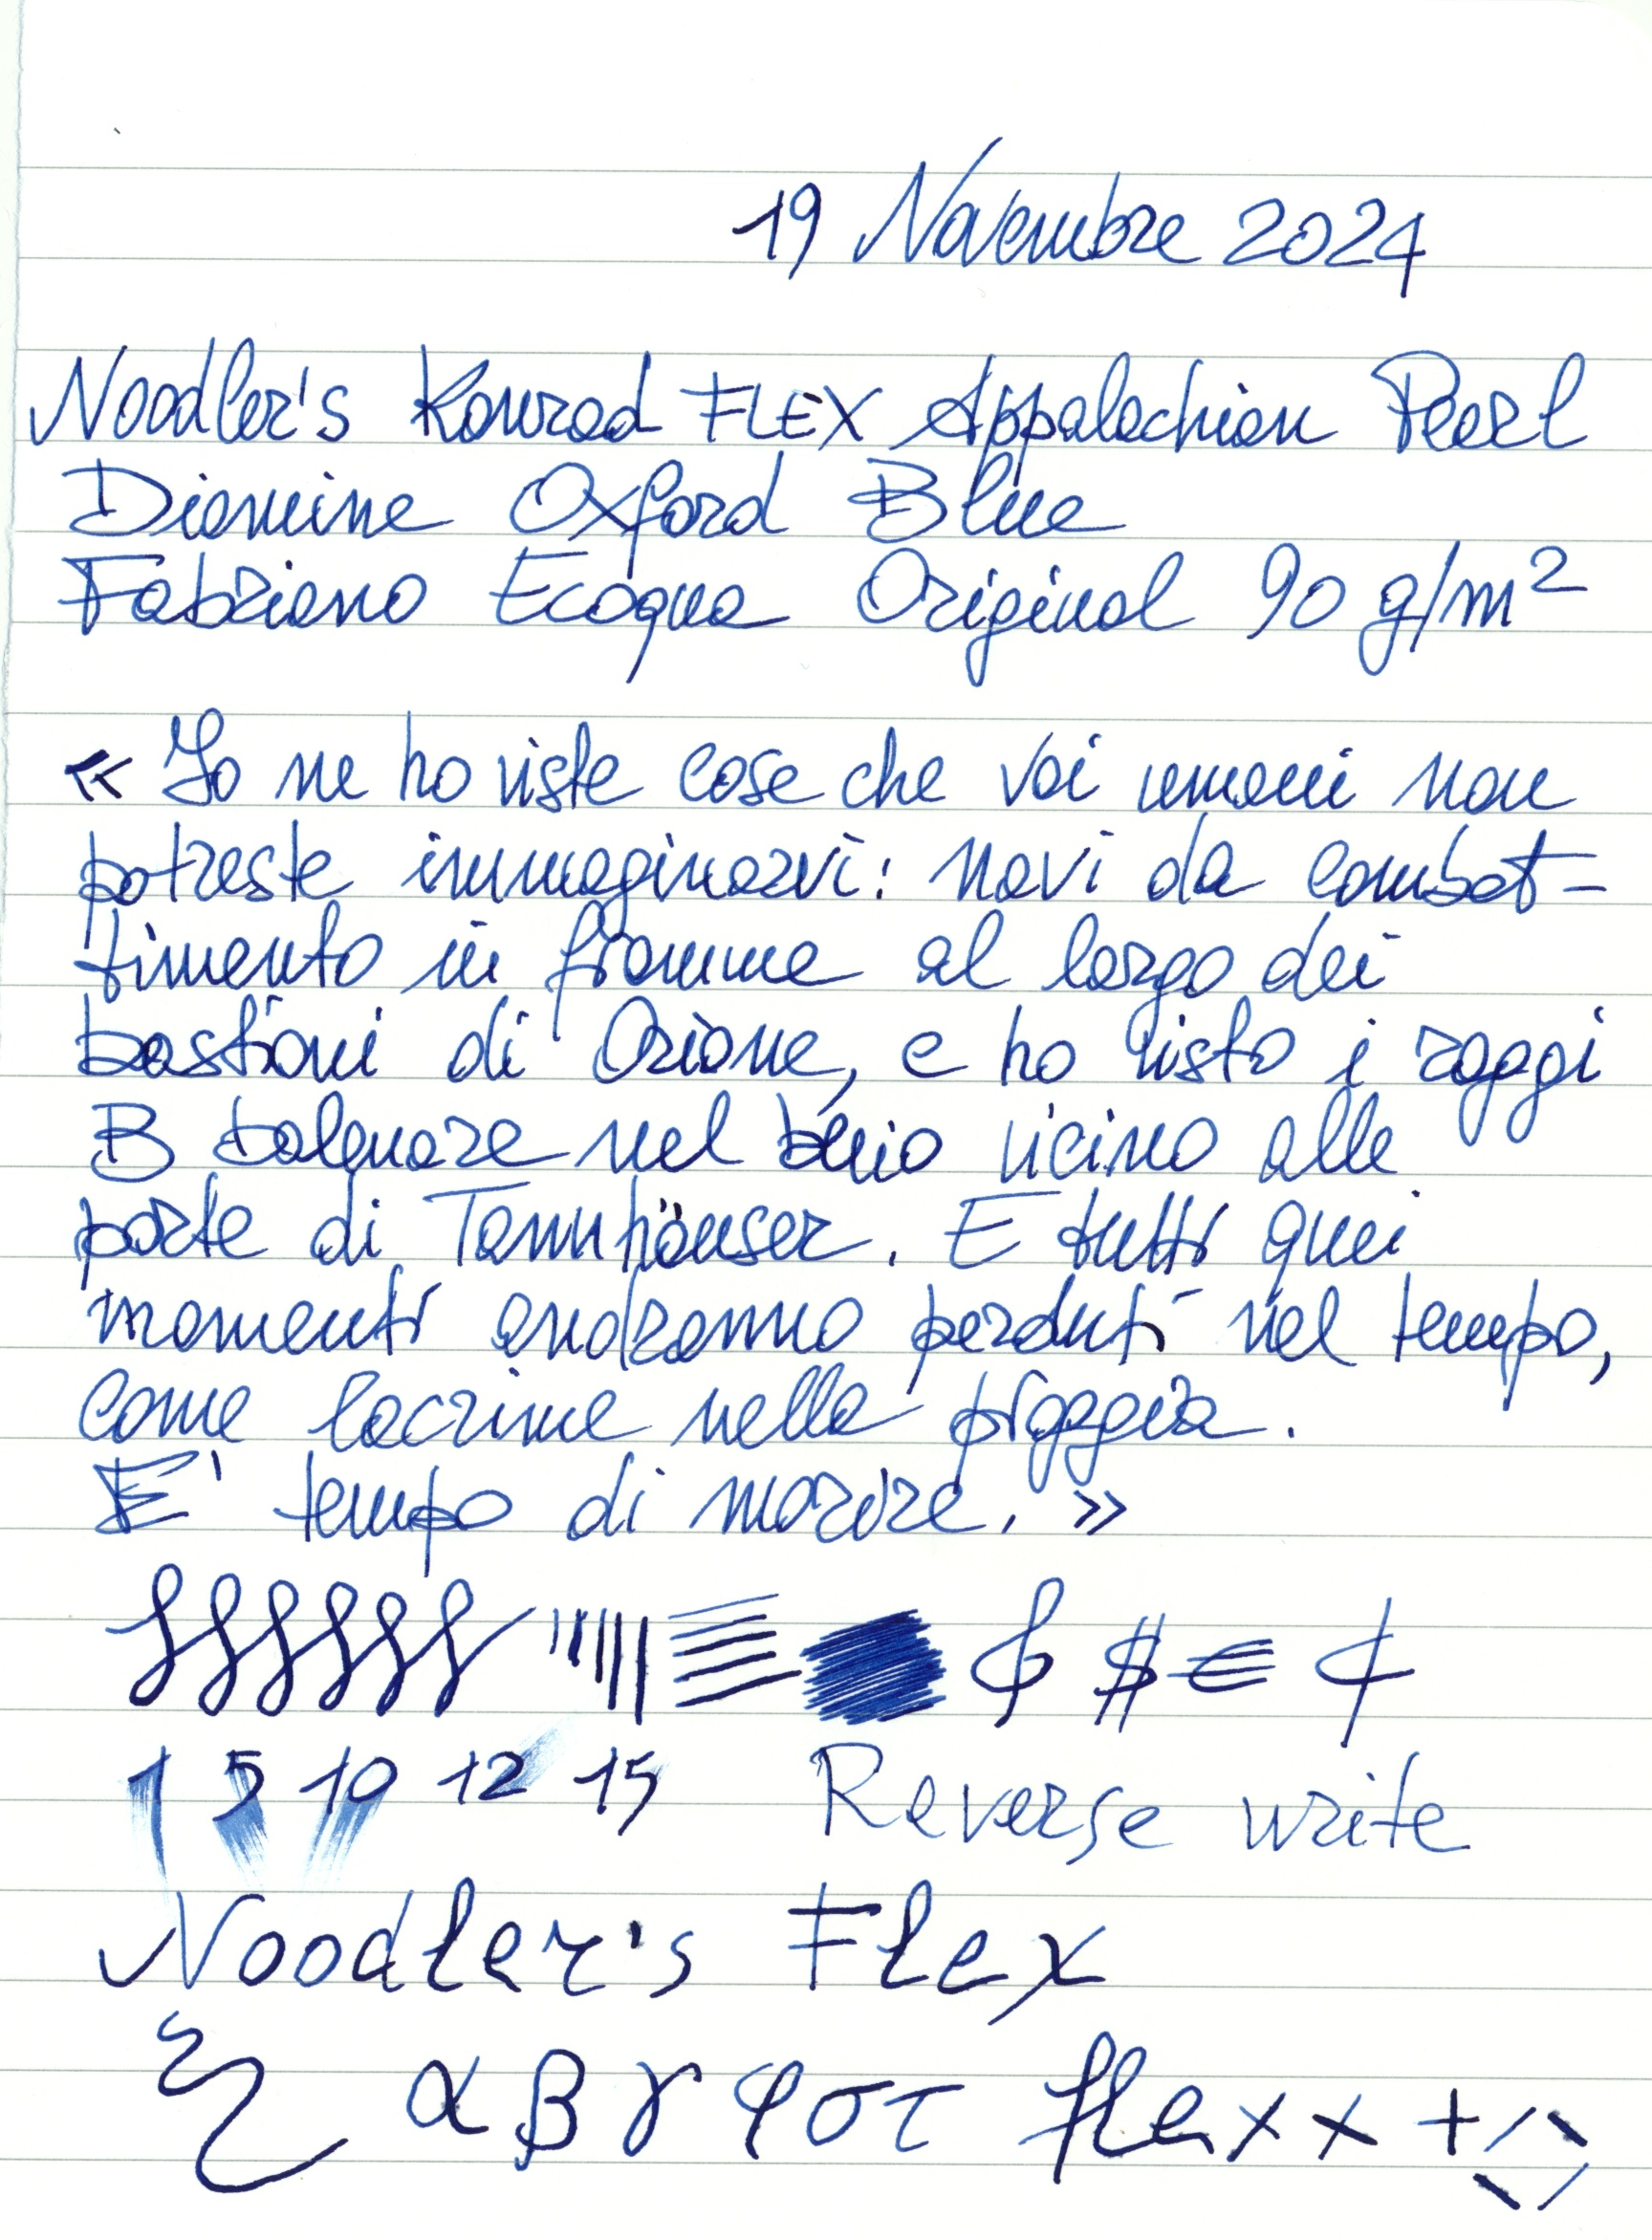 19 Novembre 2024
Noodler's Konrad FLEX Appalachian Pearl
Diamine Oxford Blue
Fabriano Ecoqua Original 90 g/m²
« Io ne ho viste cose che voi umani non
potreste immaginarvi: navi da combat=
timento in fiamme al largo dei
bastioni di Orione, e ho visto i raggi
B balenare nel buio vicino alle
porte di Tannhäuser. E tutti quei
momenti andranno perduti nel tempo,
come lacrime nella pioggia.
E' tempo di morire. »
$ € ¢
1 5 10 12 15 Reverse write
Noodler's Flex
α β γ φ σ τ flex x x + / \
\ /